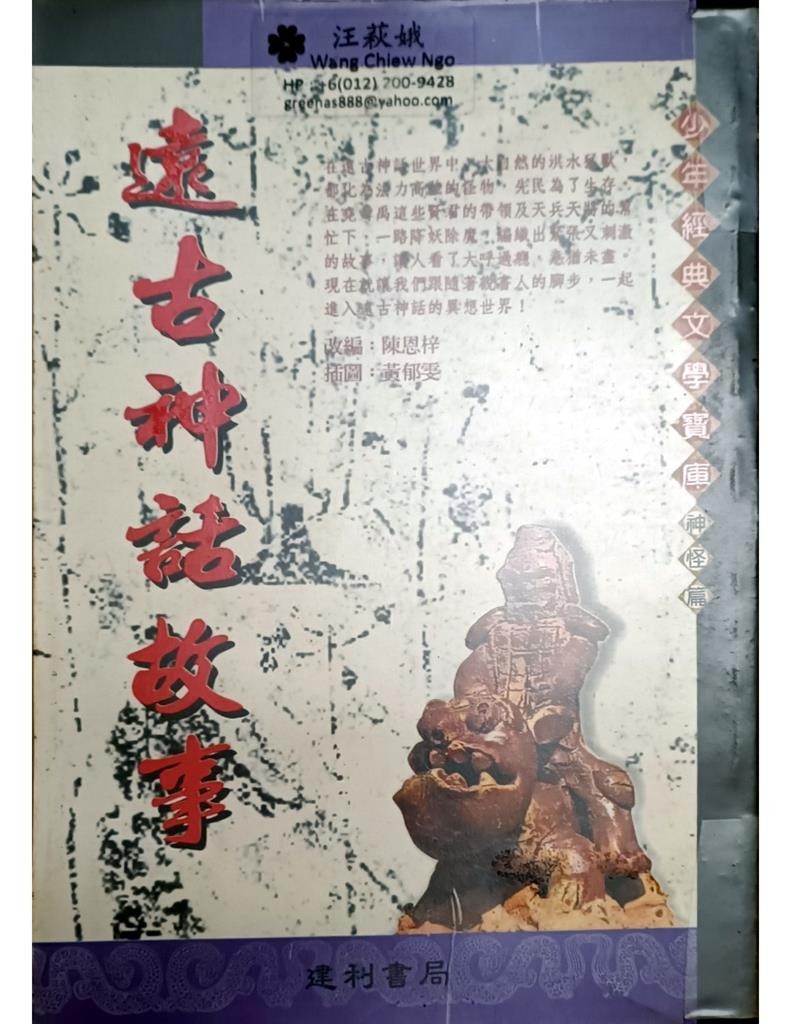 汪萩娥
Wang Chiew Ngo
HP : +6(012) 200-9428
greenas888@yahoo.com
遠古神話故事
在遠古神話世界中，大自然的洪水猛獸，
都化為法力高強的怪物，先民為了生存，
在堯舜禹這些賢君的帶領及天兵天將的幫
忙下，一路降妖除魔，編織出緊張又刺激
的故事，讓人看了大呼過癮，意猶未盡。
現在就讓我們跟隨著說書人的腳步，一起
進入遠古神話的異想世界！
改編：陳恩梓
插圖：黃郁雯
少年經典文學寶庫
神怪篇
建利書局